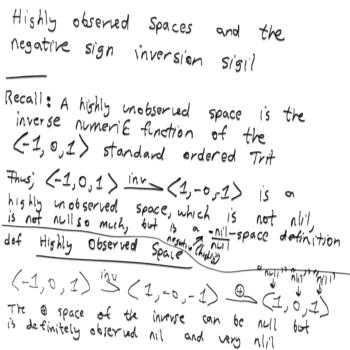 Highly observed Spaces and the
negative sign inversion sigil
Recall: A highly unobserved space is the
inverse numeric function of the
⟨-1, 0, 1⟩ standard ordered Trit
Thus; ⟨-1, 0, 1⟩ inv→ ⟨1, -0, -1⟩ is a
highly unobserved space, which is not nlil,
is not null so much, but is a -nil-space definition
negative (highly) nul
def Highly Observed Space
"null" "nil" "nlil"
⟨-1, 0, 1⟩ inv→ ⟨1, -0, -1⟩ ⊕→ ⟨1, 0, 1⟩
The ⊕ space of the inverse can be null but
is definitely observed nil and very nlil